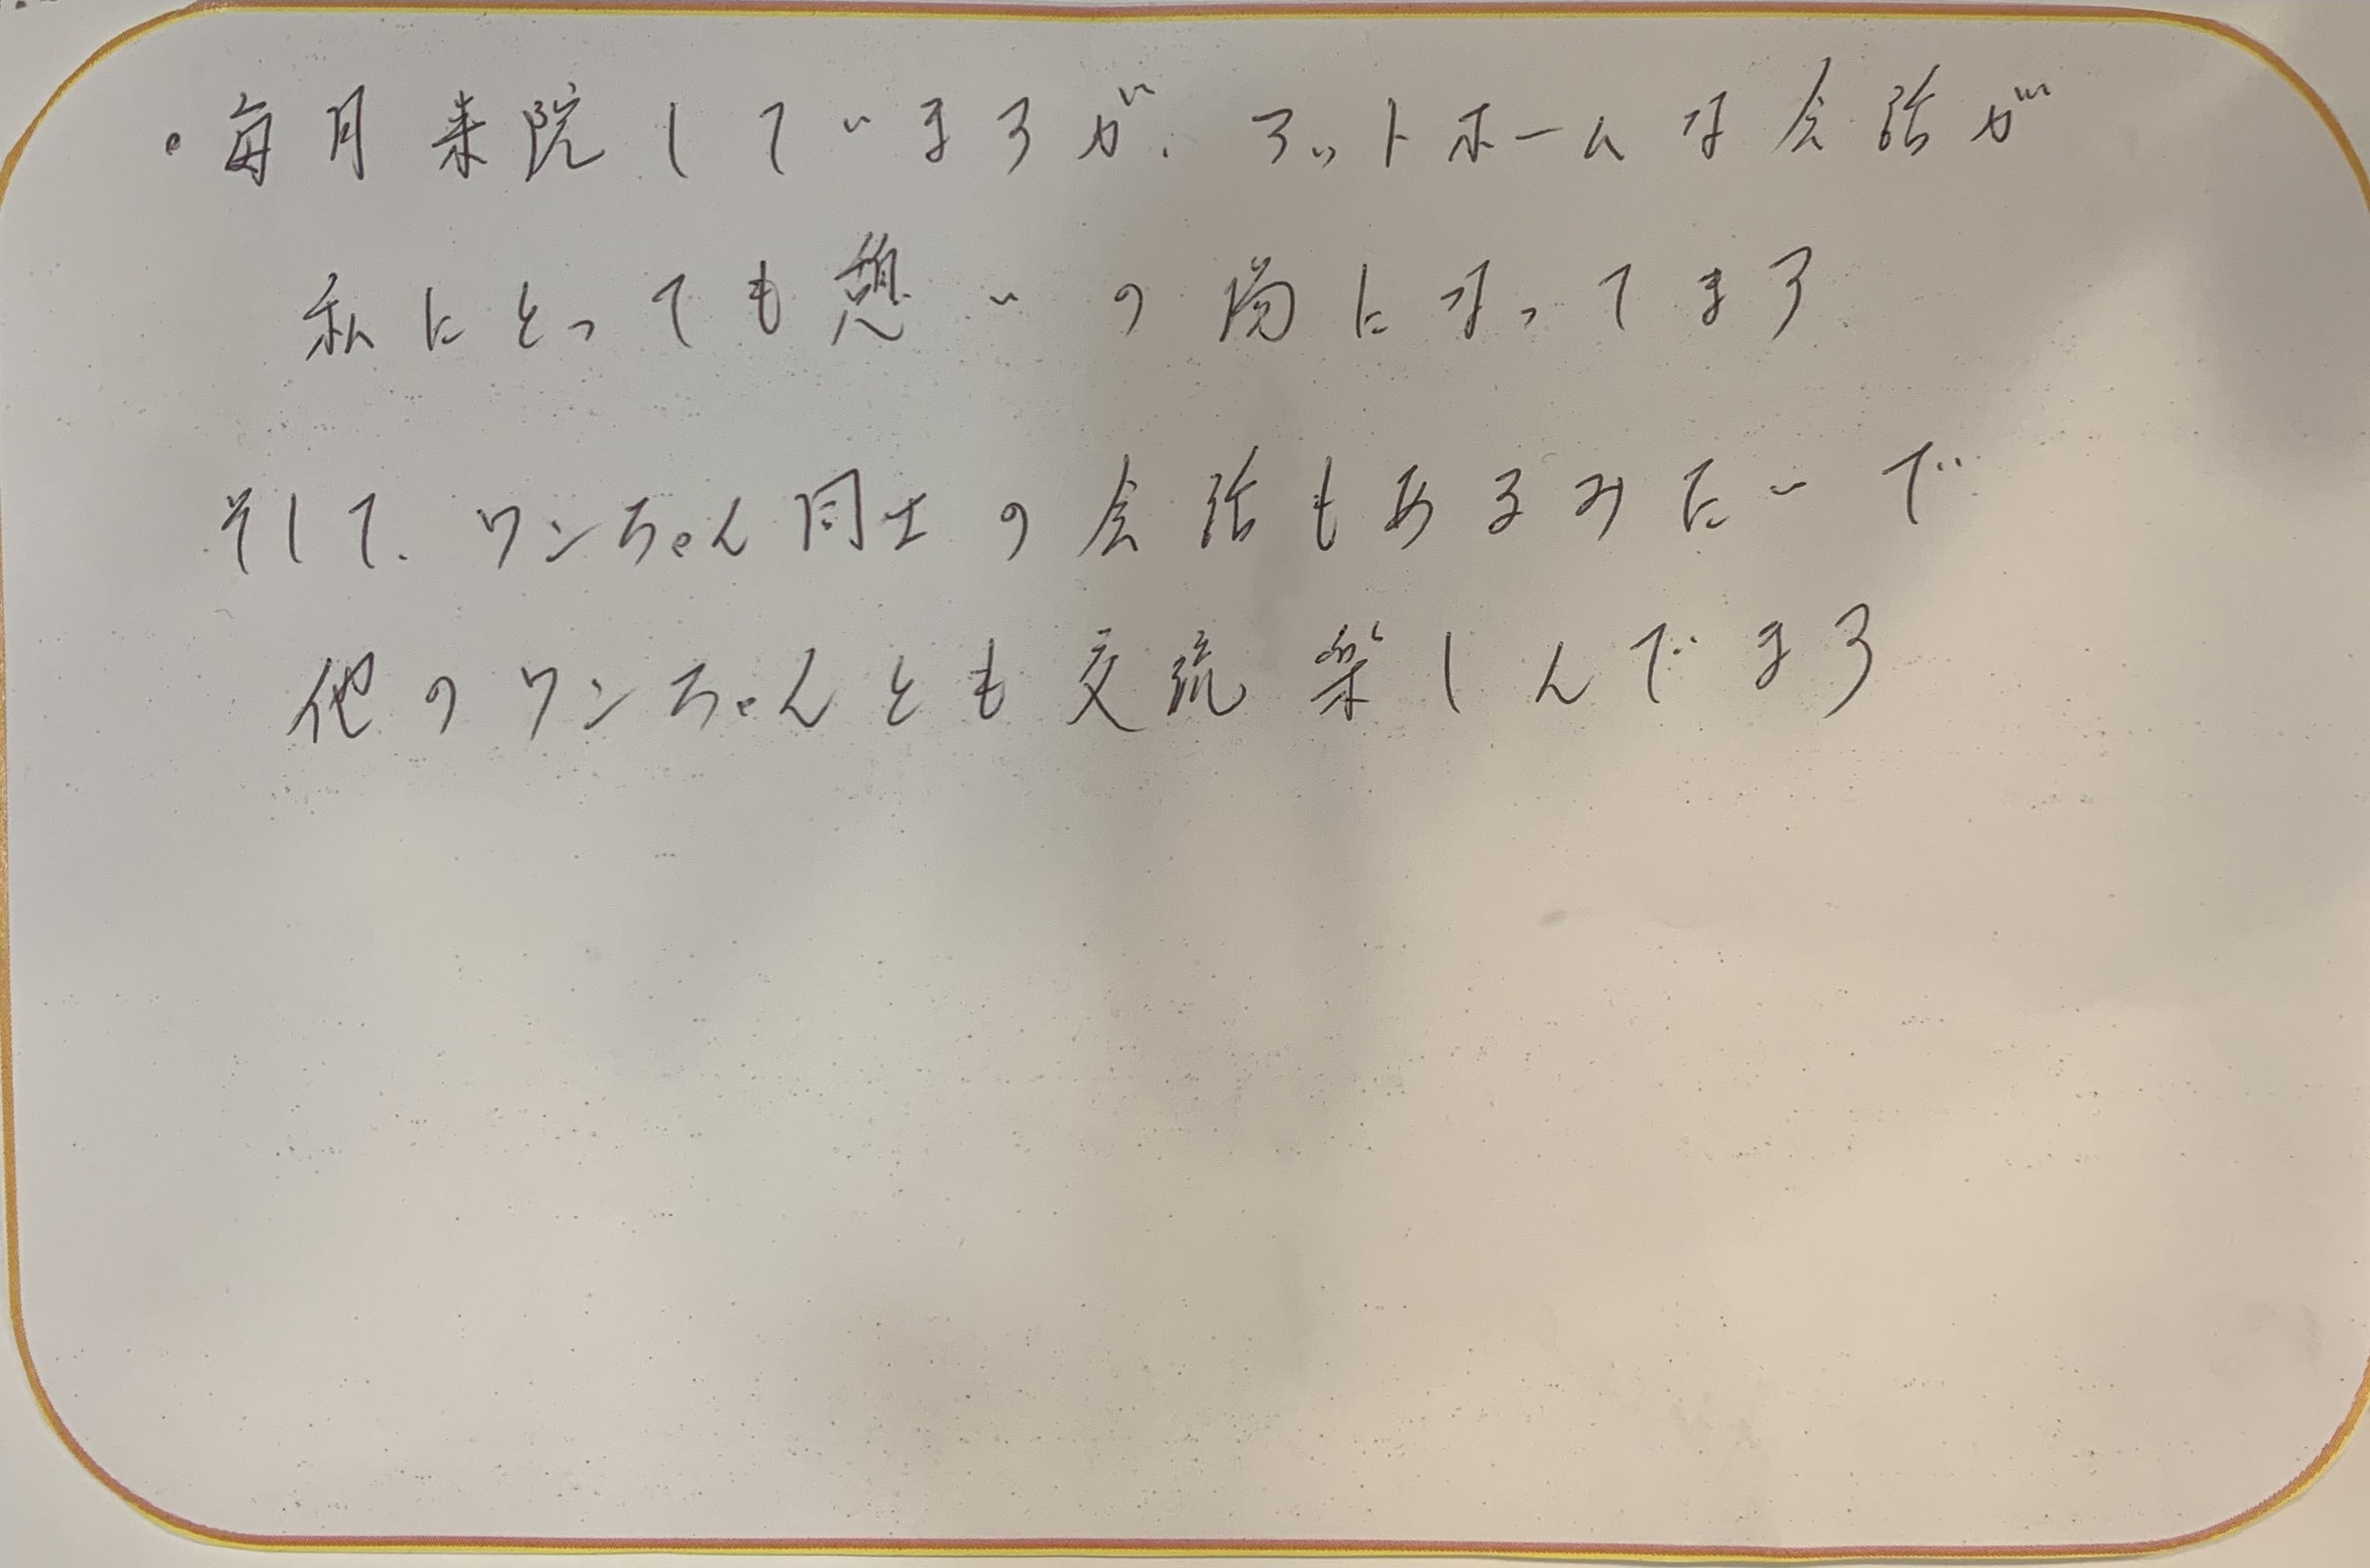 ・毎月来院していますが、アットホームな会話が
私にとっても憩いの場になってます
そして、ワンちゃん同士の会話もあるみたいで
他のワンちゃんとも交流楽しんでます